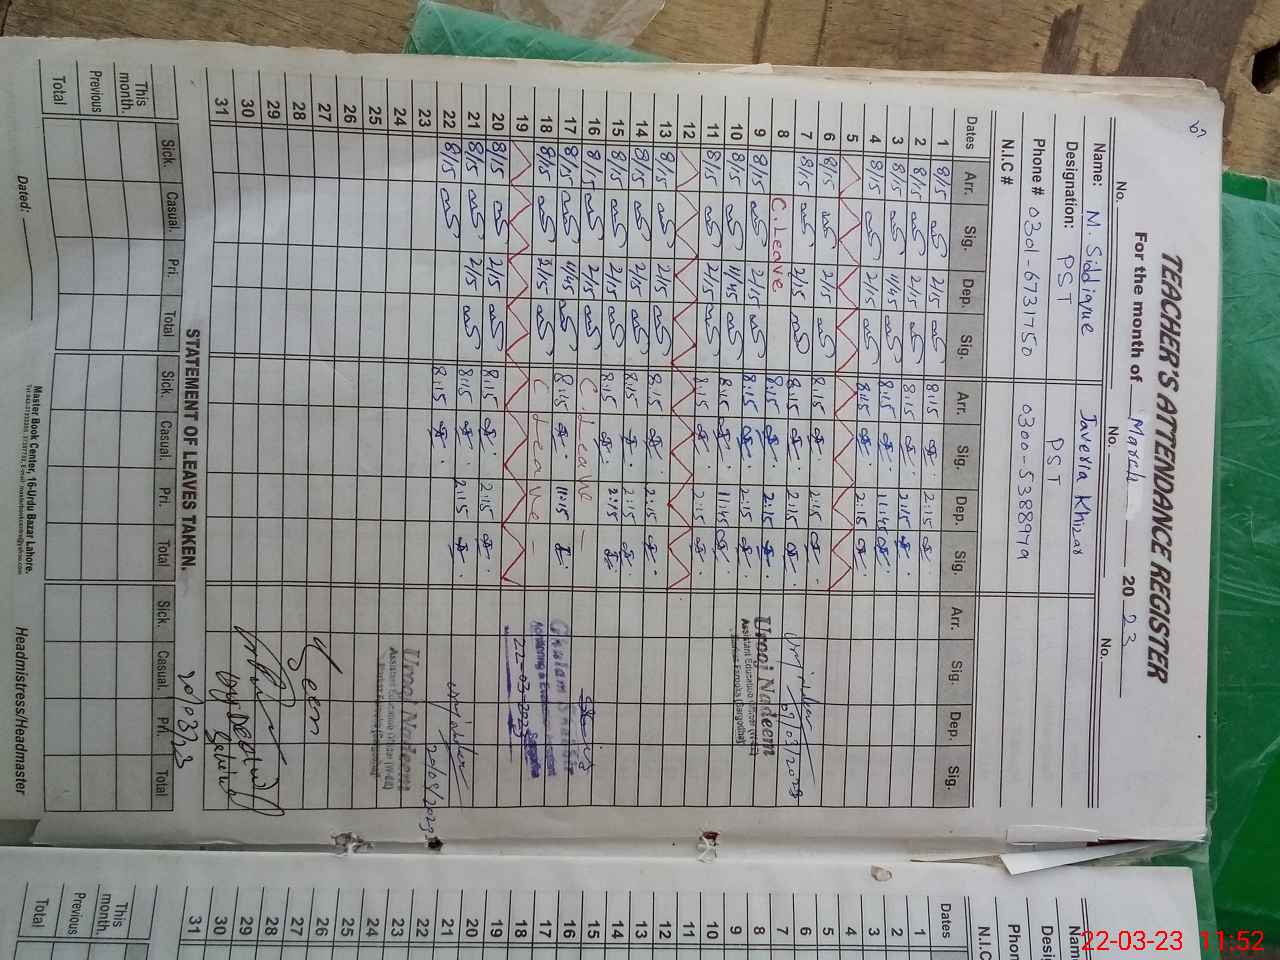 TEACHER'S ATTENDANCE REGISTER
For the month of March 2023
No. No. No.
Name: M. Siddique Javeria Khizar
Designation: PST PST
Phone # 0301-6731750 0300-5388979
N.I.C #
Dates Arr. Sig. Dep. Sig. Arr. Sig. Dep. Sig. Arr. Sig. Dep. Sig.
1 8/15 2/15 8:15 2:15
2 8/15 2/15 8:15 2:15
3 8/15 11/45 8:15 11:45
4 8/15 2/15 8:15 2:15
5
6 8/15 2/15 8:15 2:15
7 8/15 2/15 8:15 2:15 07/03/2023
8 C. Leave 8:15 2:15
9 8/15 2/15 8:15 2:15 Urooj Nadeem
10 8/15 11/45 8:15 11:45 Assistant Education Officer
11 8/15 2/15 8:15 2:15
12
13 8/15 2/15 8:15 2:15
14 8/15 2/15 8:15 2:15
15 8/15 2/15 8:15 2:15
16 8/15 2/15 C. Leave
17 8/15 11/45 8:15 11:15
18 8/15 2/15 C Leave
19 22-03-2023
20 8/15 2/15 8:15 2:15
21 8/15 2/15 8:15 2:15
22 8/15 8:15 20/03/2023
23 Urooj Nadeem
24 Assistant Education Officer
25
26
27
28
29
30
31
20/03/23
STATEMENT OF LEAVES TAKEN.
Sick. Casual. Pri. Total Sick. Casual. Pri. Total Sick. Casual. Pri. Total
This month.
Previous
Total
Dated:
Master Book Center, 16-Urdu Bazar Lahore.
Headmistress/Headmaster
Name
Phon
N.I.C
Dates
1
2
3
4
5
6
7
8
9
10
11
12
13
14
15
16
17
18
19
20
21
22
23
24
25
26
27
28
29
30
31
This month.
Previous
Total
22-03-23 11:52